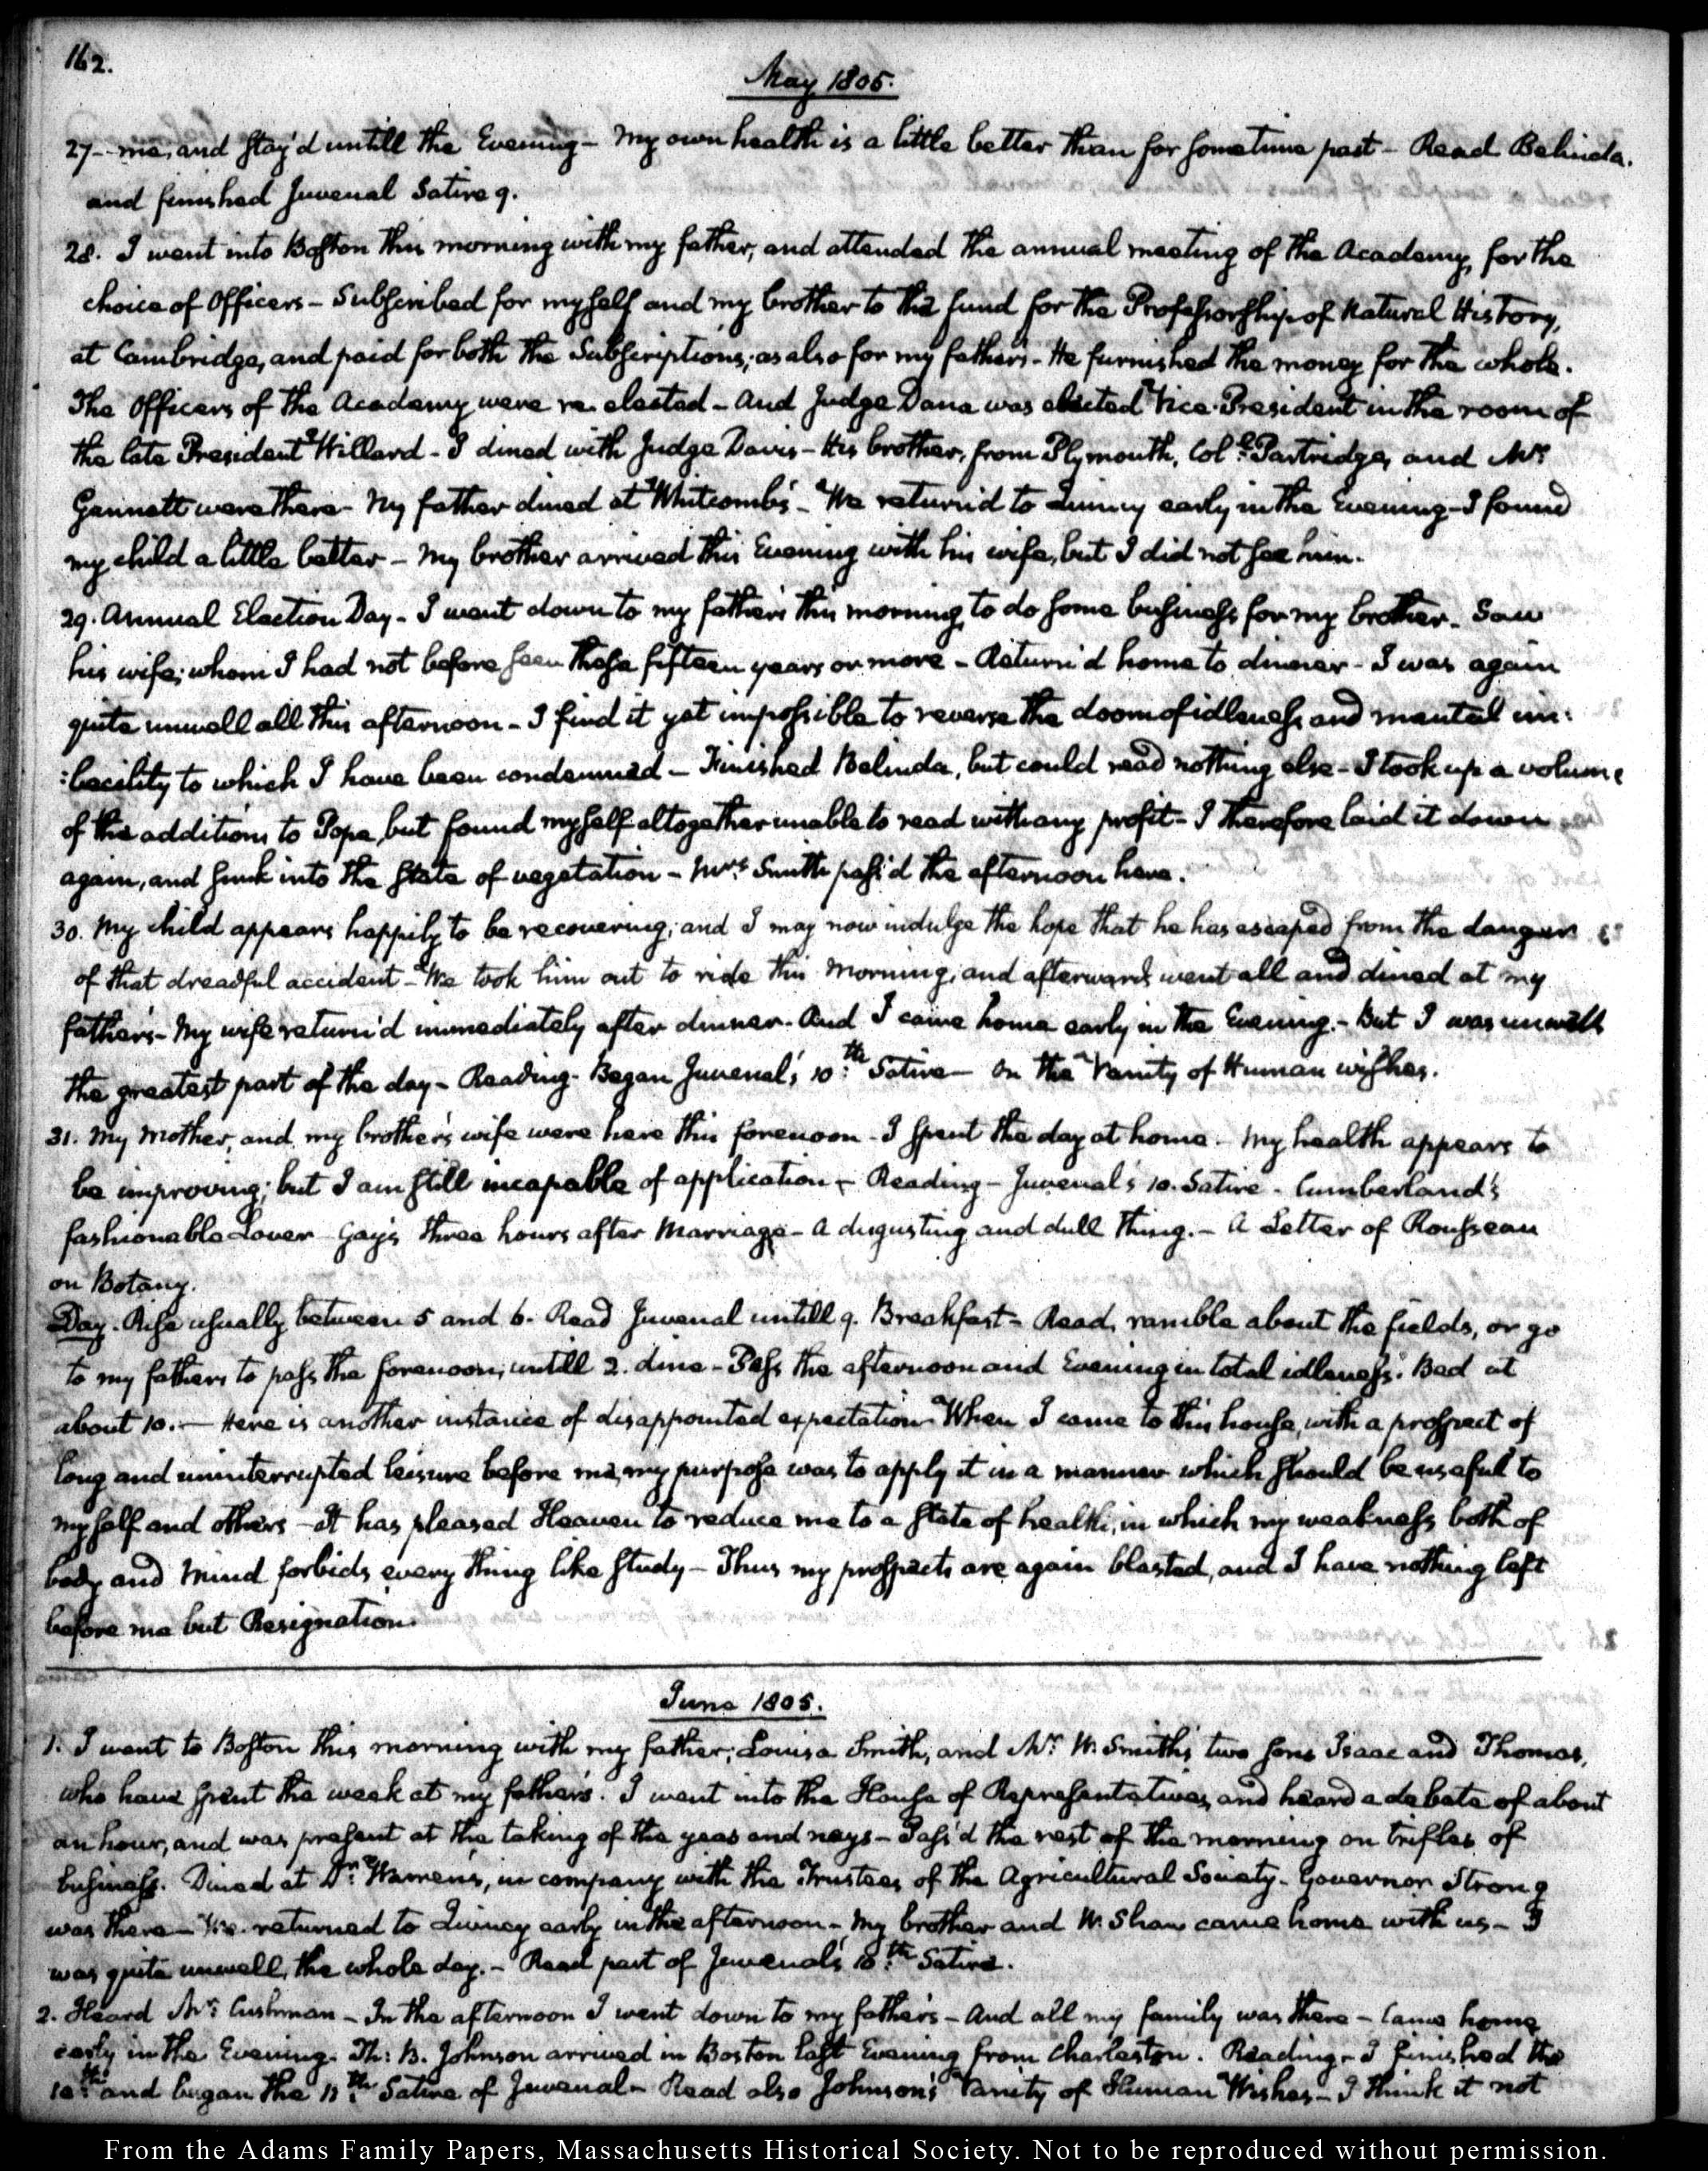 162.
May 1805.
27- me, and stay'd untill the Evening - My own health is a little better than for sometime past - Read Belinda.
and finished Juvenal Satire 9.
28. I went into Boston this morning with my father, and attended the annual meeting of the Academy, for the
choice of Officers - Subscribed for myself and my brother to the fund for the Professorship of Natural History,
at Cambridge, and paid for both the Subscriptions; as also for my father's - He furnished the money for the whole.
The Officers of the Academy were re-elected - And Judge Dana was elected Vice-President in the room of
the late President Willard - I dined with Judge Davis - His brother, from Plymouth, Coll. Partridge, and Mr.
Gannett were there - My father dined at Whitcomb's - We return'd to Quincy early in the Evening - I found
my child a little better - My brother arrived this Evening with his wife, but I did not see him.
29. Annual Election Day - I went down to my father's this morning, to do some business for my brother - Saw
his wife; whom I had not before seen these fifteen years or more - Return'd home to dinner - I was again
quite unwell all this afternoon - I find it yet impossible to reverse the doom of idleness and mental im:
:becility to which I have been condemned - Finished Belinda, but could read nothing else - I took up a volume
of the additions to Pope, but found myself altogether unable to read with any profit - I therefore laid it down
again, and sunk into the state of vegetation - Mrs. Smith pass'd the afternoon here.
30. My child appears happily to be recovering; and I may now indulge the hope that he has escaped from the danger
of that dreadful accident - We took him out to ride this morning, and afterwards went all and dined at my
father's - My wife return'd immediately after dinner. And I came home early in the Evening. - But I was unwell
the greatest part of the day - Reading. Began Juvenal's 10th. Satire - On the Vanity of Human wishes.
31. My Mother, and my brother's wife were here this forenoon - I spent the day at home - My health appears to
be improving; but I am still incapable of application - Reading - Juvenal's 10. Satire - Cumberland's
fashionable Lover - Gay's three hours after Marriage - A disgusting and dull thing. - A Letter of Rousseau
on Botany.
Day. Rise usually between 5 and 6. Read Juvenal untill 9. Breakfast - Read, ramble about the fields, or go
to my father's to pass the forenoon, untill 2. dine - Pass the afternoon and Evening in total idleness. Bed at
about 10. - Here is another instance of disappointed expectation. When I came to this house, with a prospect of
long and uninterrupted leisure before me, my purpose was to apply it in a manner which should be useful to
myself and others - It has pleased Heaven to reduce me to a state of health, in which my weakness both of
body and mind forbids every thing like study - Thus my prospects are again blasted, and I have nothing left
before me but Resignation.
June 1805.
1. I went to Boston this morning with my father, Louisa Smith, and Mr. W. Smith's two sons Isaac and Thomas,
who have spent the week at my father's. I went into the House of Representatives, and heard a debate of about
an hour, and was present at the taking of the yeas and nays - Pass'd the rest of the morning on trifles of
business. Dined at Dr. Warren's, in company with the Trustees of the Agricultural Society - Governor Strong
was there - We returned to Quincy early in the afternoon - My brother and W. Shaw came home with us - I
was quite unwell, the whole day. - Read part of Juvenal's 10th. Satire.
2. Heard Mr. Cushman - In the afternoon I went down to my father's - And all my family was there - Came home
early in the Evening. Th: B. Johnson arrived in Boston last Evening from Charleston. Reading - I finished the
10th. and began the 11th. Satire of Juvenal - Read also Johnson's Vanity of Human Wishes - I think it not
From the Adams Family Papers, Massachusetts Historical Society. Not to be reproduced without permission.